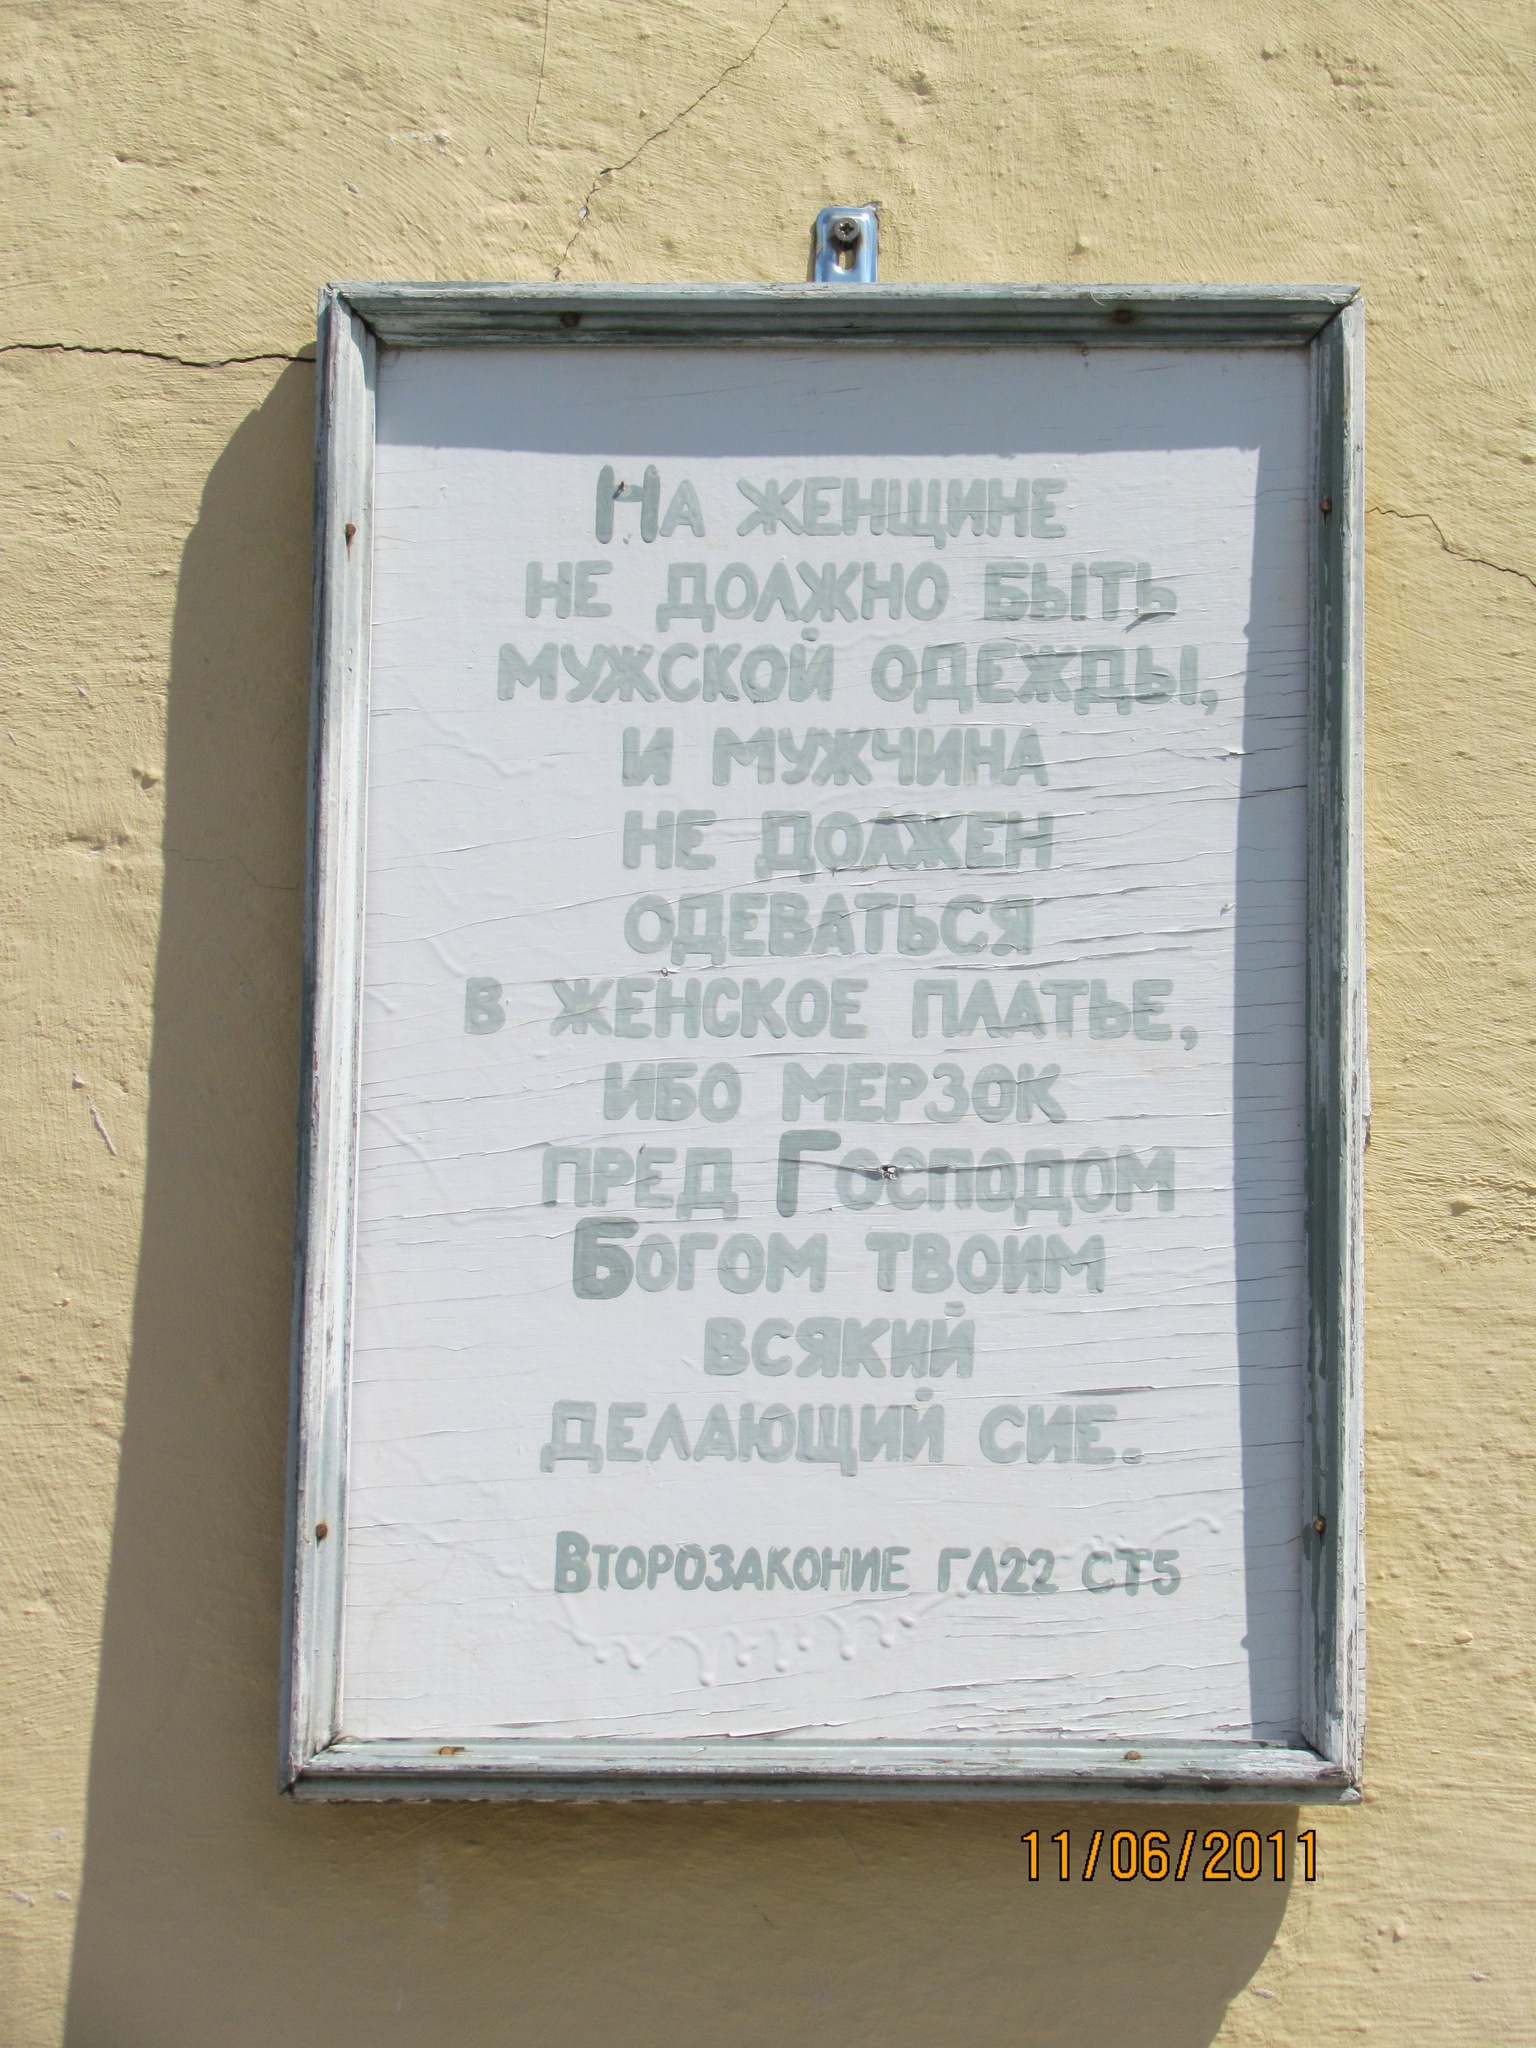 На женщине
не должно быть
мужской одежды,
и мужчина
не должен
одеваться
в женское платье,
ибо мерзок
пред Господом
Богом твоим
всякий
делающий сие.
Второзаконие гл22 ст5
11/06/2011